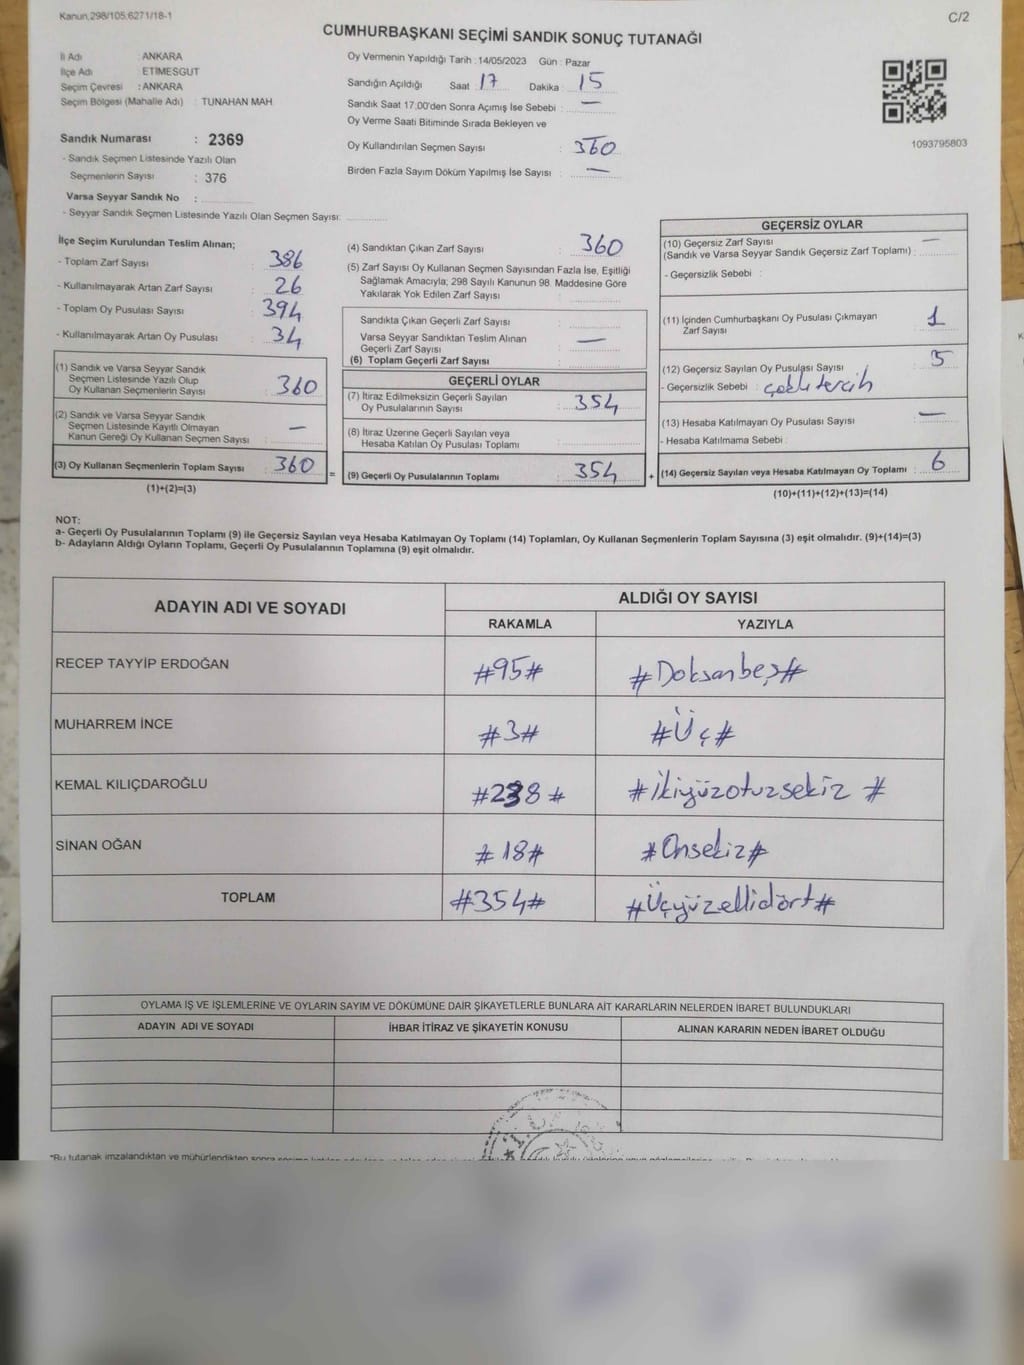 Kanun.298/105.6271/18-1
C/2
CUMHURBAŞKANI SEÇİMİ SANDIK SONUÇ TUTANAĞI
İl Adı : ANKARA
İlçe Adı : ETİMESGUT
Seçim Çevresi : ANKARA
Seçim Bölgesi (Mahalle Adı) : TUNAHAN MAH
Sandık Numarası : 2369
- Sandık Seçmen Listesinde Yazılı Olan
Seçmenlerin Sayısı : 376
Varsa Seyyar Sandık No :
- Seyyar Sandık Seçmen Listesinde Yazılı Olan Seçmen Sayısı:
Oy Vermenin Yapıldığı Tarih : 14/05/2023 Gün : Pazar
Sandığın Açıldığı Saat : 17 Dakika : 15
Sandık Saat 17:00'den Sonra Açımış İse Sebebi : —
Oy Verme Saati Bitiminde Sırada Bekleyen ve
Oy Kullandırılan Seçmen Sayısı : 360
Birden Fazla Sayım Döküm Yapılmış İse Sayısı : —
1093795803
İlçe Seçim Kurulundan Teslim Alınan;
- Toplam Zarf Sayısı : 386
- Kullanılmayarak Artan Zarf Sayısı : 26
- Toplam Oy Pusulası Sayısı : 394
- Kullanılmayarak Artan Oy Pusulası : 34
(1) Sandık ve Varsa Seyyar Sandık
Seçmen Listesinde Yazılı Olup
Oy Kullanan Seçmenlerin Sayısı : 360
(2) Sandık ve Varsa Seyyar Sandık
Seçmen Listesinde Kayıtlı Olmayan
Kanun Gereği Oy Kullanan Seçmen Sayısı : —
(3) Oy Kullanan Seçmenlerin Toplam Sayısı : 360
(1)+(2)=(3)
=
(4) Sandıktan Çıkan Zarf Sayısı : 360
(5) Zarf Sayısı Oy Kullanan Seçmen Sayısından Fazla İse, Eşitliği
Sağlamak Amacıyla; 298 Sayılı Kanunun 98. Maddesine Göre
Yakılarak Yok Edilen Zarf Sayısı :
Sandıkta Çıkan Geçerli Zarf Sayısı :
Varsa Seyyar Sandıktan Teslim Alınan
Geçerli Zarf Sayısı : —
(6) Toplam Geçerli Zarf Sayısı :
GEÇERLİ OYLAR
(7) İtiraz Edilmeksizin Geçerli Sayılan
Oy Pusulalarının Sayısı : 354
(8) İtiraz Üzerine Geçerli Sayılan veya
Hesaba Katılan Oy Pusulası Toplamı :
(9) Geçerli Oy Pusulalarının Toplamı : 354
+
GEÇERSİZ OYLAR
(10) Geçersiz Zarf Sayısı —
(Sandık ve Varsa Seyyar Sandık Geçersiz Zarf Toplamı) :
- Geçersizlik Sebebi :
(11) İçinden Cumhurbaşkanı Oy Pusulası Çıkmayan
Zarf Sayısı : 1
(12) Geçersiz Sayılan Oy Pusulası Sayısı : 5
- Geçersizlik Sebebi : çoklu tercih
(13) Hesaba Katılmayan Oy Pusulası Sayısı : —
- Hesaba Katılmama Sebebi :
(14) Geçersiz Sayılan veya Hesaba Katılmayan Oy Toplamı : 6
(10)+(11)+(12)+(13)=(14)
NOT:
a- Geçerli Oy Pusulalarının Toplamı (9) ile Geçersiz Sayılan veya Hesaba Katılmayan Oy Toplamı (14) Toplamları, Oy Kullanan Seçmenlerin Toplam Sayısına (3) eşit olmalıdır. (9)+(14)=(3)
b- Adayların Aldığı Oyların Toplamı, Geçerli Oy Pusulalarının Toplamına (9) eşit olmalıdır.
ADAYIN ADI VE SOYADI ALDIĞI OY SAYISI
RAKAMLA YAZIYLA
RECEP TAYYİP ERDOĞAN #95# #Doksanbeş#
MUHARREM İNCE #3# #Üç#
KEMAL KILIÇDAROĞLU #238# #ikiyüzotuzsekiz#
SİNAN OĞAN #18# #Onsekiz#
TOPLAM #354# #Üçyüzellidört#
OYLAMA İŞ VE İŞLEMLERİNE VE OYLARIN SAYIM VE DÖKÜMÜNE DAİR ŞİKAYETLERLE BUNLARA AİT KARARLARIN NELERDEN İBARET BULUNDUKLARI
ADAYIN ADI VE SOYADI İHBAR İTİRAZ VE ŞİKAYETİN KONUSU ALINAN KARARIN NEDEN İBARET OLDUĞU
*Bu tutanak imzalandıktan ve mühürlendikten sonra